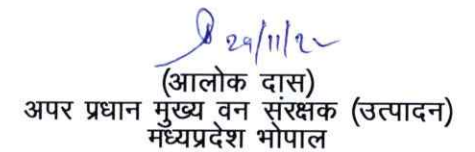 29/11/2
(आलोक दास)
अपर प्रधान मुख्य वन संरक्षक (उत्पादन)
मध्यप्रदेश भोपाल